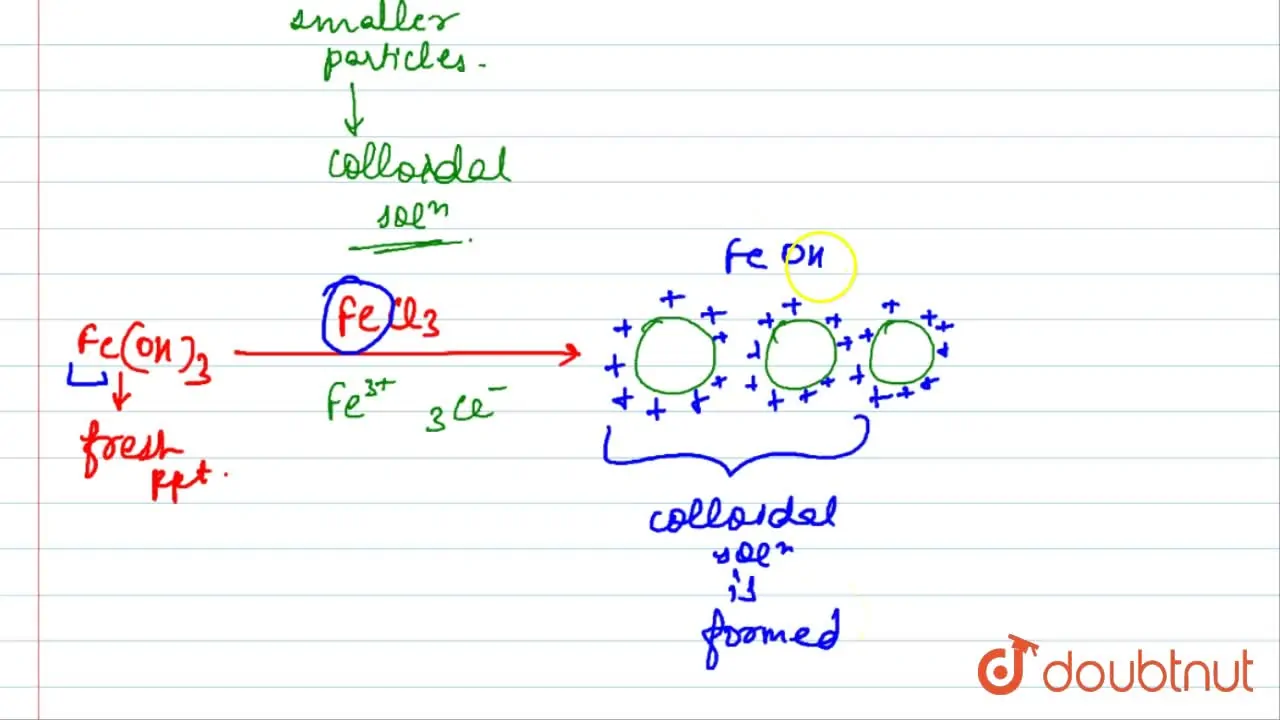 smaller
particles.
colloidal
solⁿ
Fe OH
FeCl₃
Fe(OH)₃
Fe³⁺ 3Cl⁻
fresh
ppt.
+ + + + + + + + + +
+ + + + + + + + +
+ + + + + + + + +
colloidal
solⁿ
is
formed
doubtnut